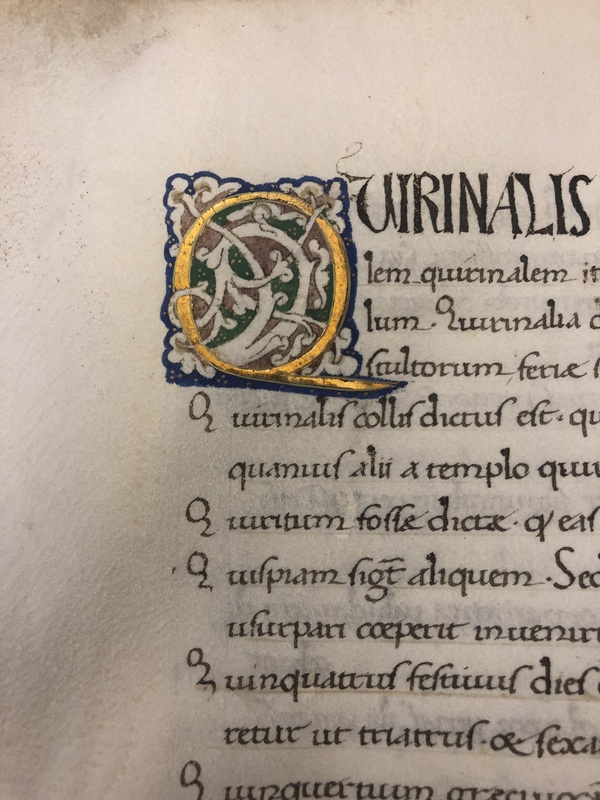 QUIRINALIS
lem quirinalem it
lum. Quirinalia
scultorum feriæ
Quirinalis collis dictus est. qu
quamuis alii a templo quir
Quiritium fossæ dictæ. q eas
Quispiam sigt̄ aliquem. Sed
usurpari cœperit inueniri
Quinquatrus festiuus dies
retur ut triatrus. & sexa
Quinquertium